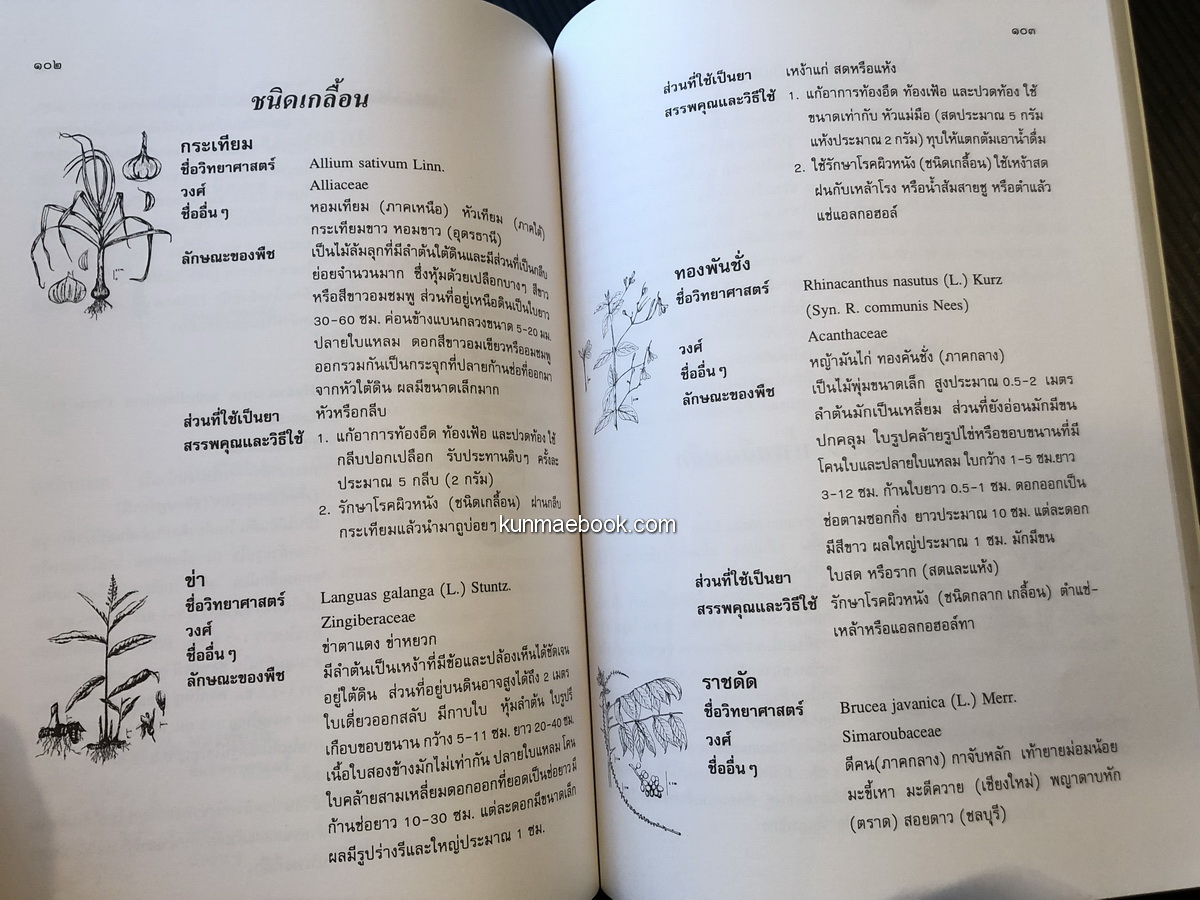 ๑๐๒
ชนิดเกลื้อน
กระเทียม
ชื่อวิทยาศาสตร์ Allium sativum Linn.
วงศ์ Alliaceae
ชื่ออื่น ๆ หอมเทียม (ภาคเหนือ) หัวเทียม (ภาคใต้)
กระเทียมขาว หอมขาว (อุดรธานี)
ลักษณะของพืช เป็นไม้ล้มลุกที่มีลำต้นใต้ดินและมีส่วนที่เป็นกลีบ
ย่อยจำนวนมาก ซึ่งหุ้มด้วยเปลือกบางๆ สีขาว
หรือสีขาวอมชมพู ส่วนที่อยู่เหนือดินเป็นใบยาว
30-60 ซม. ค่อนข้างแบนกลวงขนาด 5-20 มม.
ปลายใบแหลม ดอกสีขาวอมเขียวหรืออมชมพู
ออกรวมกันเป็นกระจุกที่ปลายก้านช่อที่ออกมา
จากหัวใต้ดิน ผลมีขนาดเล็กมาก
ส่วนที่ใช้เป็นยา หัวหรือกลีบ
สรรพคุณและวิธีใช้ 1. แก้อาการท้องอืด ท้องเฟ้อ และปวดท้อง ใช้
กลีบปอกเปลือก รับประทานดิบๆ ครั้งละ
ประมาณ 5 กลีบ (2 กรัม)
2. รักษาโรคผิวหนัง (ชนิดเกลื้อน) ฝานกลีบ
กระเทียมแล้วนำมาถูบ่อยๆ
ข่า
ชื่อวิทยาศาสตร์ Languas galanga (L.) Stuntz.
วงศ์ Zingiberaceae
ชื่ออื่น ๆ ข่าตาแดง ข่าหยวก
ลักษณะของพืช มีลำต้นเป็นเหง้าที่มีข้อและปล้องเห็นได้ชัดเจน
อยู่ใต้ดิน ส่วนที่อยู่บนดินอาจสูงได้ถึง 2 เมตร
ใบเดี่ยวออกสลับ มีกาบใบ หุ้มลำต้น ใบรูปรี
เกือบขอบขนาน กว้าง 5-11 ซม. ยาว 20-40 ซม.
เนื้อใบสองข้างมักไม่เท่ากัน ปลายใบแหลม โคน
ใบคล้ายสามเหลี่ยมดอกออกที่ยอดเป็นช่อยาว มี
ก้านช่อยาว 10-30 ซม. แต่ละดอกมีขนาดเล็ก
ผลมีรูปร่างรีและใหญ่ประมาณ 1 ซม.
kunmaebook.com
๑๐๓
ส่วนที่ใช้เป็นยา เหง้าแก่ สดหรือแห้ง
สรรพคุณและวิธีใช้ 1. แก้อาการท้องอืด ท้องเฟ้อ และปวดท้อง ใช้
ขนาดเท่ากับ หัวแม่มือ (สดประมาณ 5 กรัม
แห้งประมาณ 2 กรัม) ทุบให้แตกต้มเอาน้ำดื่ม
2. ใช้รักษาโรคผิวหนัง (ชนิดเกลื้อน) ใช้เหง้าสด
ฝนกับเหล้าโรง หรือน้ำส้มสายชู หรือตำแล้ว
แช่แอลกอฮอล์
ทองพันชั่ง
ชื่อวิทยาศาสตร์ Rhinacanthus nasutus (L.) Kurz
(Syn. R. communis Nees)
วงศ์ Acanthaceae
ชื่ออื่น ๆ หญ้ามันไก่ ทองคันชั่ง (ภาคกลาง)
ลักษณะของพืช เป็นไม้พุ่มขนาดเล็ก สูงประมาณ 0.5-2 เมตร
ลำต้นมักเป็นเหลี่ยม ส่วนที่ยังอ่อนมักมีขน
ปกคลุม ใบรูปคล้ายรูปไข่หรือขอบขนานที่มี
โคนใบและปลายใบแหลม ใบกว้าง 1-5 ซม.ยาว
3-12 ซม. ก้านใบยาว 0.5-1 ซม. ดอกออกเป็น
ช่อตามซอกกิ่ง ยาวประมาณ 10 ซม. แต่ละดอก
มีสีขาว ผลใหญ่ประมาณ 1 ซม. มักมีขน
ส่วนที่ใช้เป็นยา ใบสด หรือราก (สดและแห้ง)
สรรพคุณและวิธีใช้ รักษาโรคผิวหนัง (ชนิดกลาก เกลื้อน) ตำแช่-
เหล้าหรือแอลกอฮอล์ทา
ราชดัด
ชื่อวิทยาศาสตร์ Brucea javanica (L.) Merr.
วงศ์ Simaroubaceae
ชื่ออื่น ๆ ดีคน(ภาคกลาง) กาจับหลัก เท้ายายม่อมน้อย
มะขี้เหา มะดีควาย (เชียงใหม่) พญาดาบหัก
(ตราด) สอยดาว (ชลบุรี)